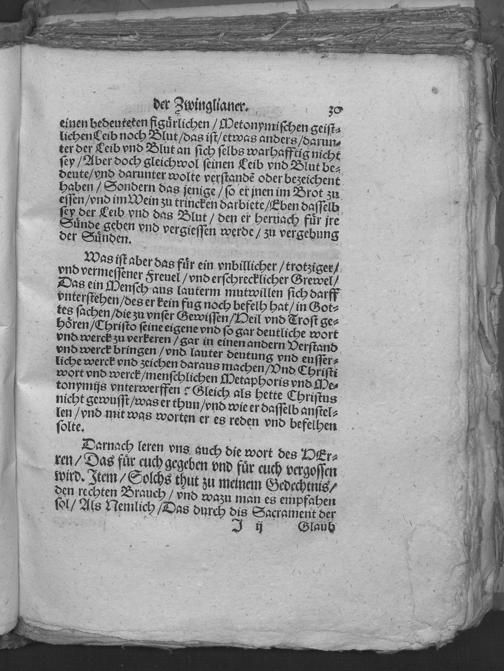 der Zwinglianer. 30
einen bedeuteten figürlichen / Metonymischen geist-
lichen Leib noch Blut / das ist / etwas anders / darun-
ter der Leib vnd Blut an sich selbs warhafftig nicht
sey / Aber doch gleichwol seinen Leib vnd Blut be-
deute / vnd darunter wolte verstandē oder bezeichent
haben / Sondern das jenige / so er jnen im Brot zu
essen / vnd im Wein zu trincken darbiete / Eben dasselb
sey der Leib vnd das Blut / den er hernach für jre
Sünde geben vnd vergiessen werde / zu vergebung
der Sünden.
Was ist aber das für ein vnbillicher / trotziger /
vnd vermessener Freuel / vnd erschrecklicher Grewel /
Das ein Mensch aus lauterm mutwillen sich darff
vnterstehen / des er kein fug noch befelh hat / in Got-
tes sachen / die zu vnser Gewissen / Heil vnd Trost ge-
hören / Christo seine eigene vnd so gar deutliche wort
vnd werck zu verkeren / gar in einen andern Verstand
vnd werck bringen / vnd lauter deutung vnd eusser-
liche werck vnd zeichen daraus machen / Vnd Christi
wort vnd werck / menschlichen Metaphoris vnd Me-
tonymijs vnterwerffen? Gleich als hette Christus
nicht gewusst / was er thun / vnd wie er dasselb anstel-
len / vnd mit was worten er es reden vnd befelhen
solte.
Darnach leren vns auch die wort des HEr-
ren / Das für euch gegeben vnd für euch vergossen
wird. Item / Solchs thut zu meinem Gedechtnis /
den rechten Brauch / vnd wazu man es empfahen
sol / Als Nemlich / Das durch dis Sacrament der
J ij Glaub